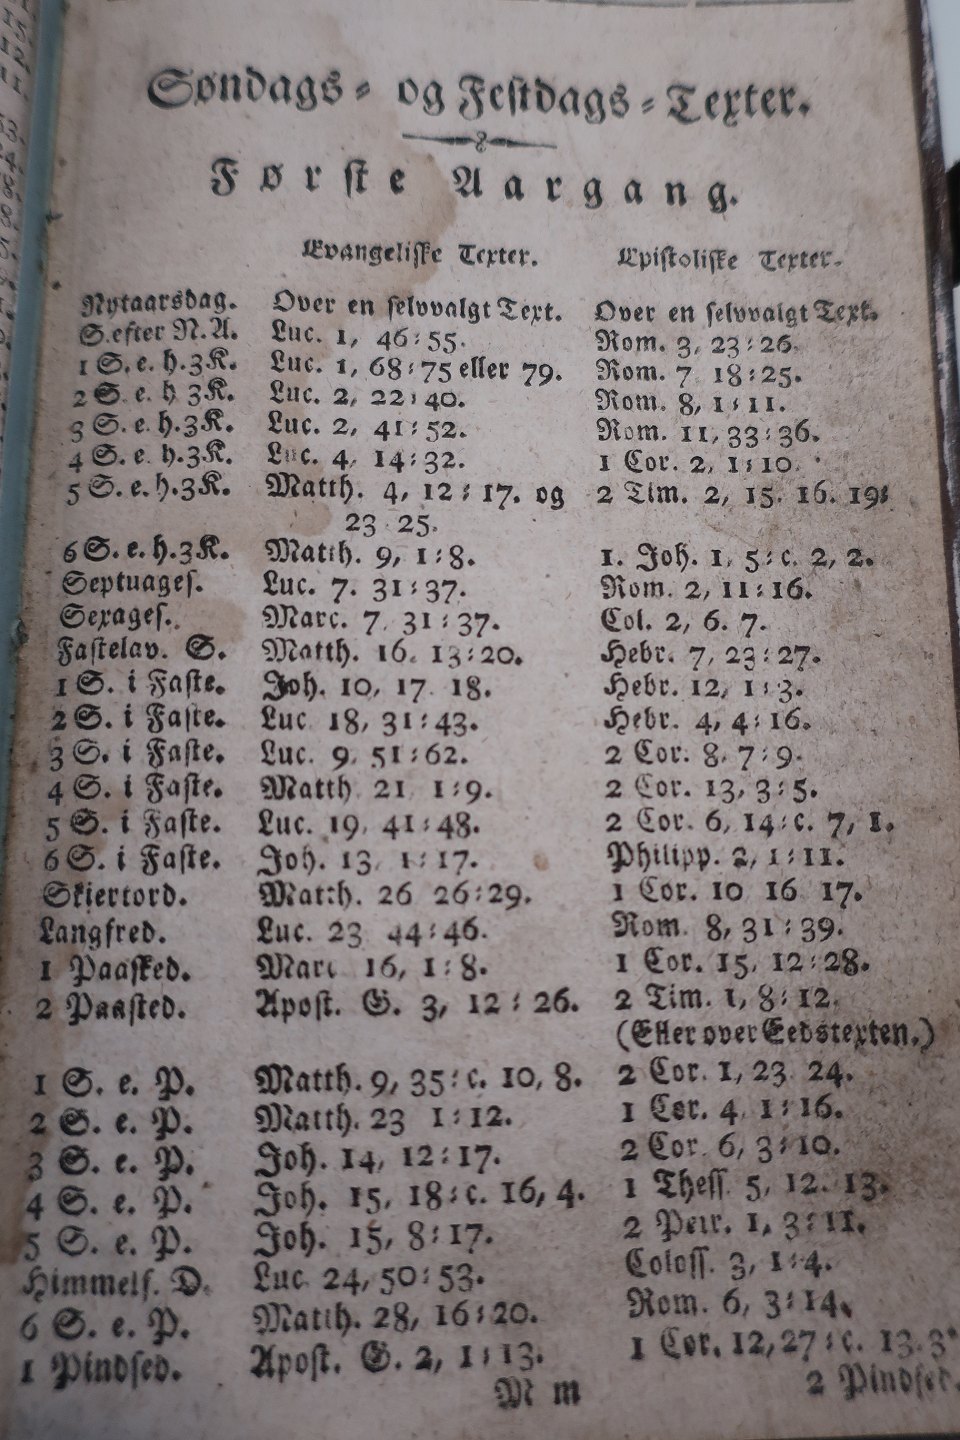 Søndags- og Festdags-Texter.
Første Aargang.
Evangeliske Texter. Epistoliske Texter.
Nytaarsdag. Over en selvvalgt Text. Over en selvvalgt Text.
S. efter N. A. Luc. 1, 46:55. Rom. 3, 23:26.
1 S. e. h. 3 K. Luc. 1, 68:75 eller 79. Rom. 7 18:25.
2 S. e. h 3 K. Luc. 2, 22:40. Rom. 8, 1:11.
3 S. e. h. 3 K. Luc. 2, 41:52. Rom. 11, 33:36.
4 S. e. h. 3 K. Luc. 4, 14:32. 1 Cor. 2, 1:10.
5 S. e. h. 3 K. Matth. 4, 12:17. og 2 Tim. 2, 15. 16. 19:
23 25.
6 S. e. h. 3 K. Matth. 9, 1:8. 1. Joh. 1, 5:c. 2, 2.
Septuages. Luc. 7. 31:37. Rom. 2, 11:16.
Sexages. Marc. 7, 31:37. Col. 2, 6. 7.
Fastelav. S. Matth. 16. 13:20. Hebr. 7, 23:27.
1 S. i Faste. Joh. 10, 17. 18. Hebr. 12, 1:3.
2 S. i Faste. Luc. 18, 31:43. Hebr. 4, 4:16.
3 S. i Faste. Luc. 9, 51:62. 2 Cor. 8, 7:9.
4 S. i Faste. Matth 21, 1:9. 2 Cor. 13, 3:5.
5 S. i Faste. Luc. 19, 41:48. 2 Cor. 6, 14:c. 7, 1.
6 S. i Faste. Joh. 13, 1:17. Philipp. 2, 1:11.
Skiertord. Matth. 26 26:29. 1 Cor. 10 16 17.
Langfred. Luc. 23 44:46. Rom. 8, 31:39.
1 Paasked. Marc 16, 1:8. 1 Cor. 15, 12:28.
2 Paasked. Apost. G. 3, 12:26. 2 Tim. 1, 8:12.
(Eller over Eedstexten.)
1 S. e. P. Matth. 9, 35:c. 10, 8. 2 Cor. 1, 23 24.
2 S. e. P. Matth. 23 1:12. 1 Cor. 4, 1:16.
3 S. e. P. Joh. 14, 12:17. 2 Cor. 6, 3:10.
4 S. e. P. Joh. 15, 18:c. 16, 4. 1 Thess. 5, 12. 13.
5 S. e. P. Joh. 15, 8:17. 2 Petr. 1, 3:11.
Himmels. D. Luc. 24, 50:53. Coloss. 3, 1:4.
6 S. e. P. Matth. 28, 16:20. Rom. 6, 3:14.
1 Pindsed. Apost. G. 2, 1:13. 1 Cor. 12, 27:c. 13. 3.
M m 2 Pindsed.